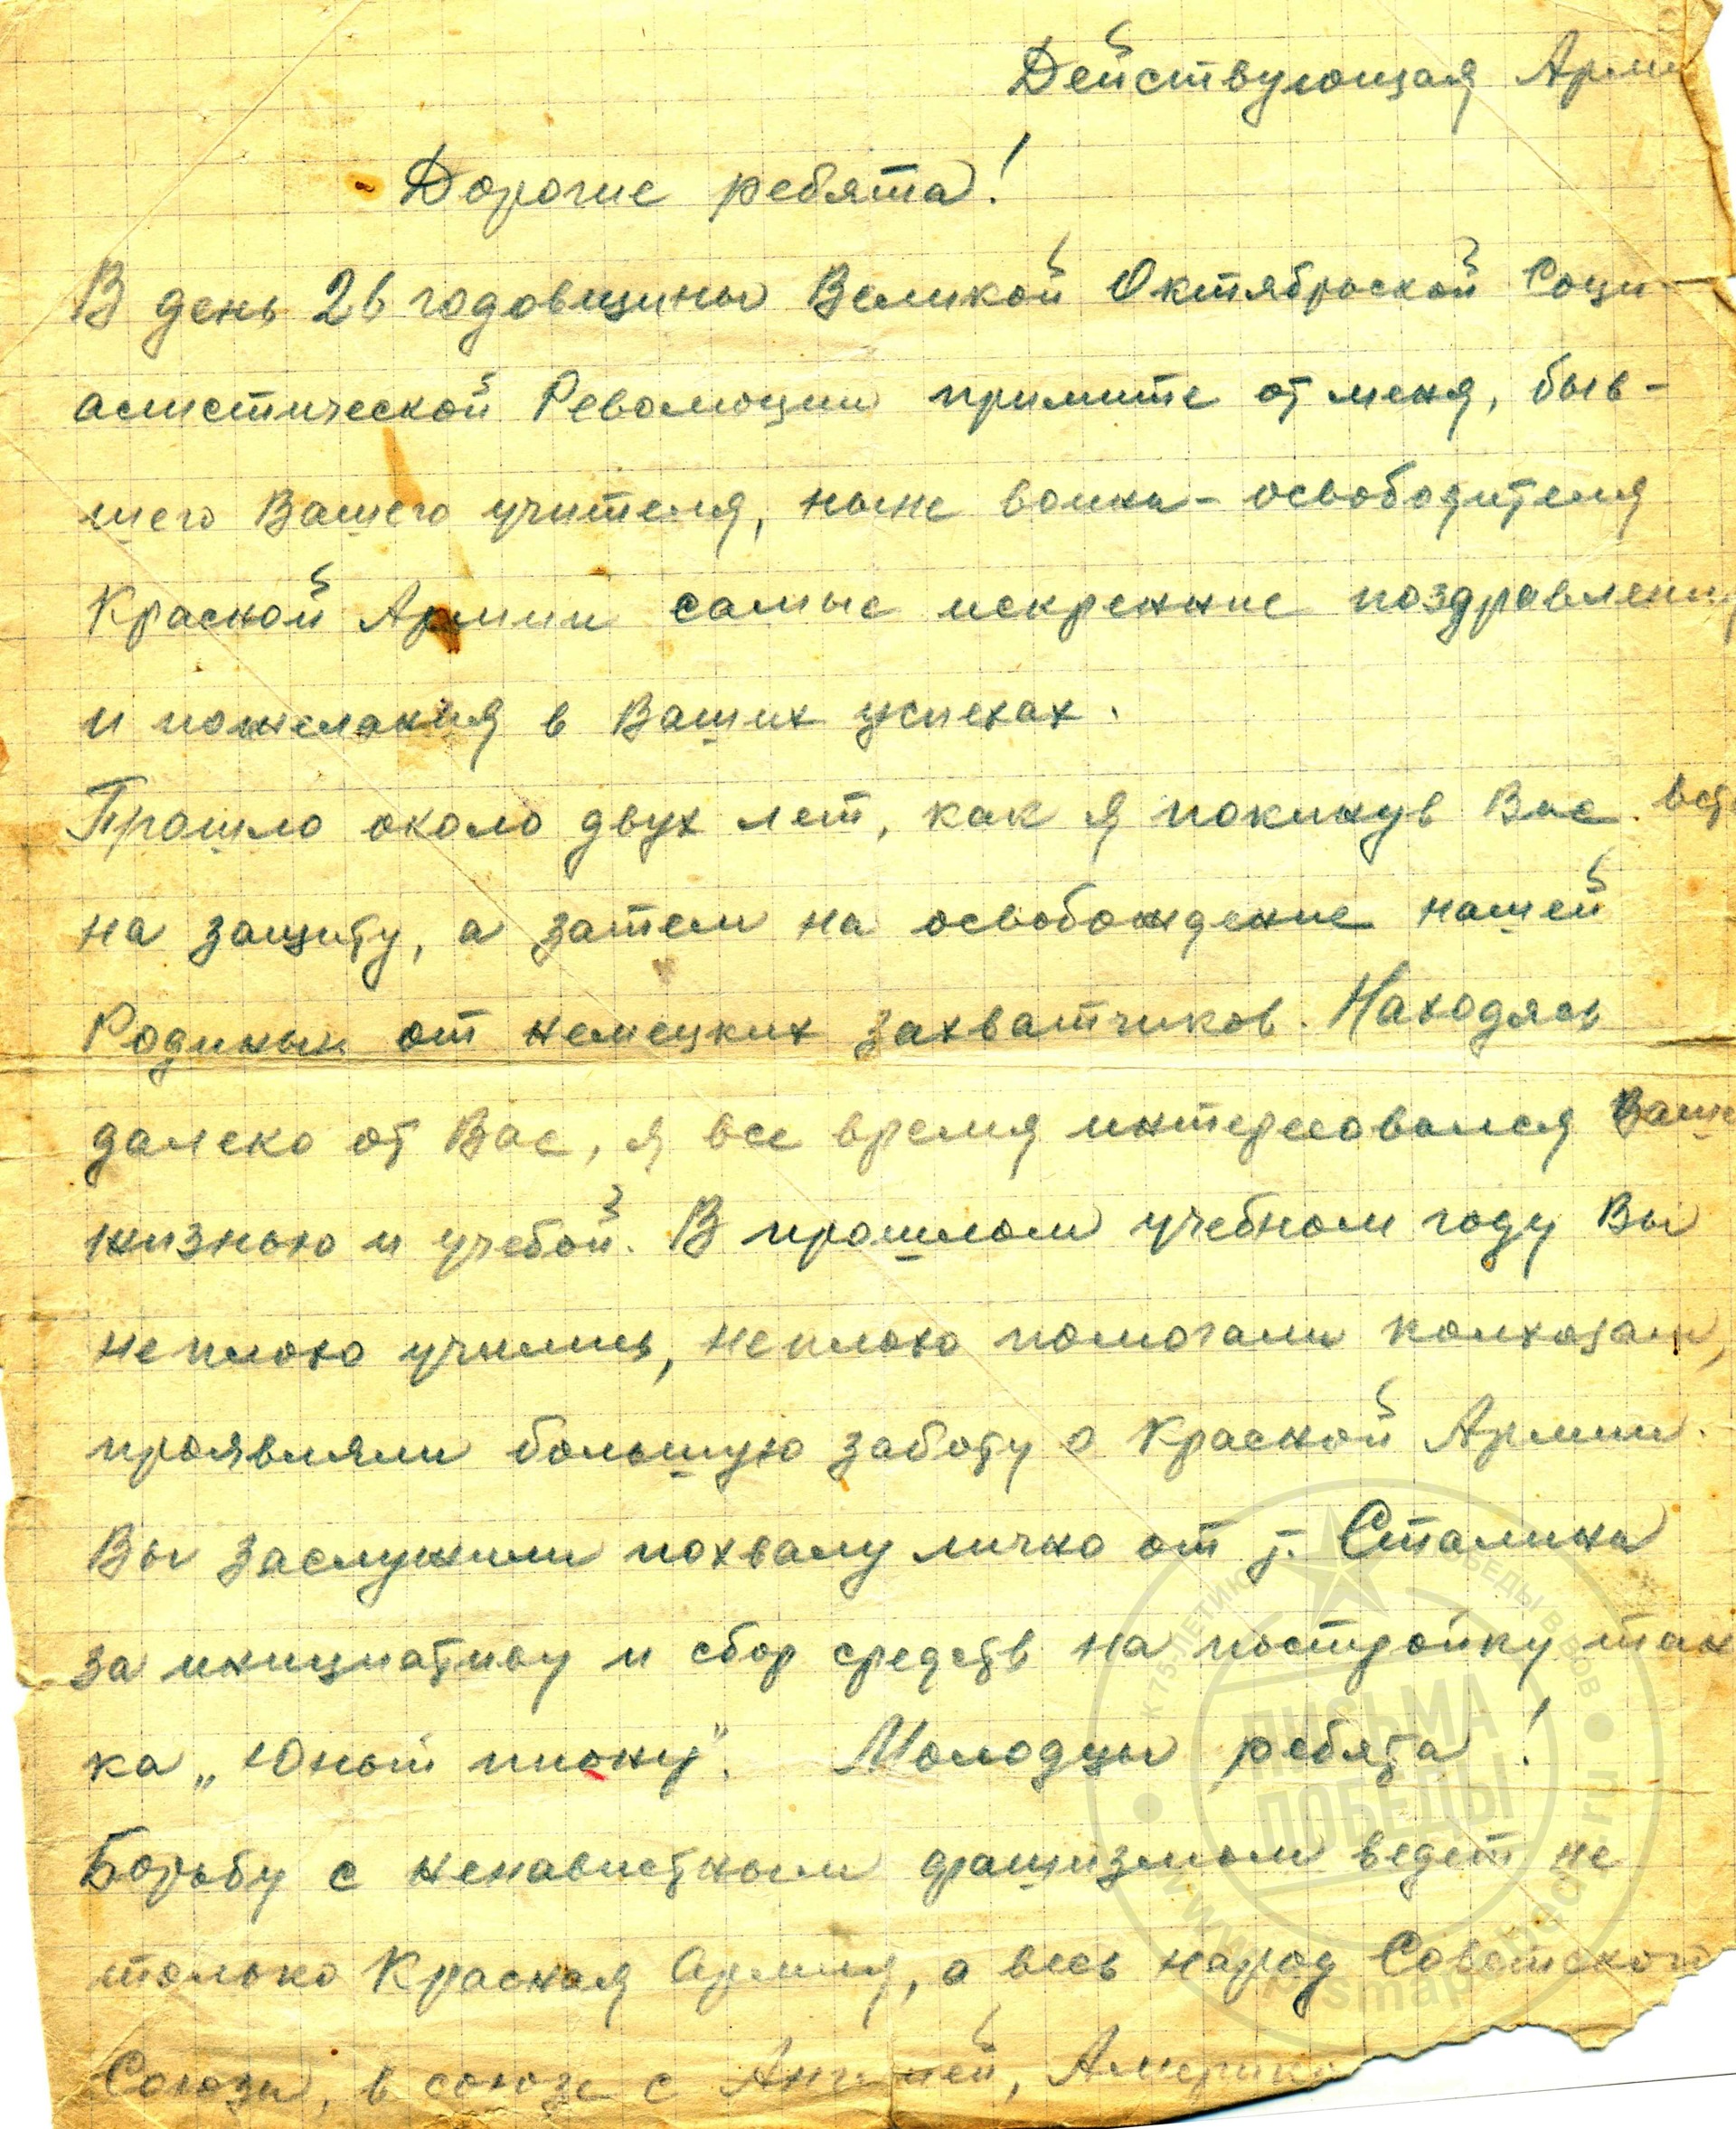 Действующая Арми
Дорогие ребята!
В день 26 годовщины Великой Октябрьской Соци-
алистической Революции примите от меня, быв-
шего Вашего учителя, ныне воина-освободителя
Красной Армии самые искренние поздравления
и пожелания в Ваших успехах.
Прошло около двух лет, как я покинув Вас
на защиту, а затем на освобождение нашей
Родины от немецких захватчиков. Находясь
далеко от Вас, я все время интересовался Ваше
жизнью и учебой. В прошлом учебном году Вы
неплохо учились, неплохо помогали колхозам,
проявляли большую заботу о Красной Армии.
Вы заслужили похвалу лично от т. Сталина
за инициативу и сбор средств на постройку тан
ка „Юный пионер". Молодцы ребята!
Борьбу с ненавистным фашизмом ведет не
только Красная Армия, а весь народ Советского
Союза, в союзе с Англией, Америко
К 75-ЛЕТИЮ ПОБЕДЫ В ВОВ
ПИСЬМА
ПОБЕДЫ
www.pismapobedy.ru